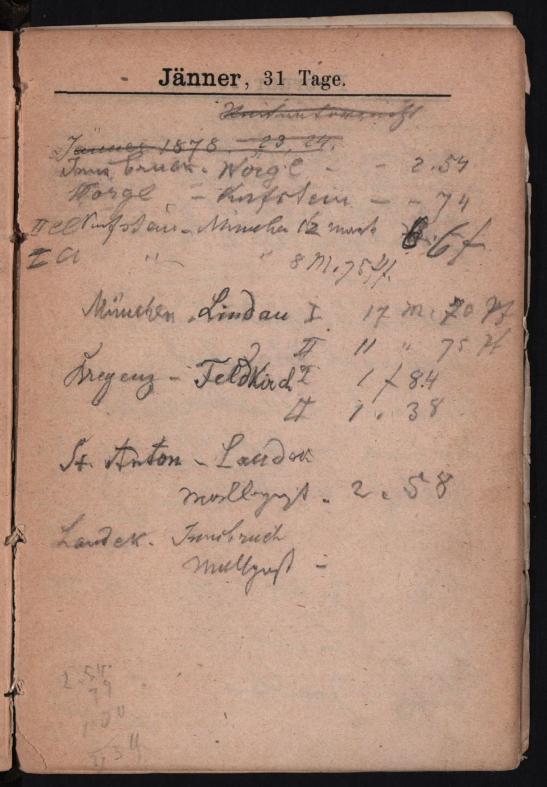 Jänner, 31 Tage.
Jänner 1878. 23. 24.
Innsbruck. Wörgl - - 2.54
Wörgl - Kufstein - - 74
II Cl Kufstein - München 12 mark 6 f
I Cl " " 8 M. 75 Pf.
München - Lindau I 17 M. 70 Pf
II 11 " 75 Pf
Bregenz - Feldkirch I 1 f 84
II 1. 38
St. Anton - Landek
2. 58
Landek. Innsbruck
-
2 54
74